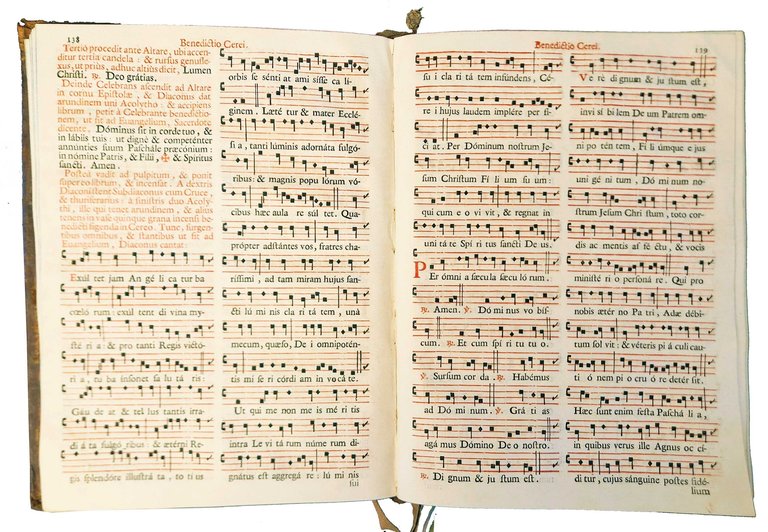 138
Benedictio Cerei.
Tertiò procedit ante Altare, ubi accen-
ditur tertia candela: & rursus genufle-
xus, ut priùs, adhuc altiùs dicit, Lumen
Christi. ℟. Deo grátias.
Deinde Celebrans ascendit ad Altare
in cornu Epistolæ, & Diaconus dat
arundinem uni Acolytho: & accipiens
librum, petit à Celebrante benedictio-
nem, ut fit ad Euangelium, Sacerdote
dicente. Dóminus sit in corde tuo, &
in lábiis tuis: ut dignè & competénter
annúnties suum Paschále præcónium:
in nómine Patris, & Fílii, ✠ & Spíritus
sancti. Amen.
Postea vadit ad pulpitum, & ponit
super eo librum, & incensat: A dextris
Diaconi stent Subdiaconus cum Cruce,
& thuriferarius: à sinistris duo Acoly-
thi, ille qui tenet arundinem, & alius
tenens in vase quinque grana incensi be-
nedicti figenda in Cereo. Tunc, surgen-
tibus omnibus, & stantibus ut fit ad
Euangelium, Diaconus cantat:
Exúl tet jam An gé li ca tur ba
cœló rum: exúl tent di vína my-
sté ri a: & pro tanti Regis victó-
ri a, tu ba ínsonet sa lu tá ris:
Gáu de at & tel lus tantis irra-
di á ta fulgó ribus: & ætérni Re-
gis splendóre illustrá ta, to tí us
orbis se sénti at ami sísse ca lí-
ginem. Læté tur & mater Ecclé-
si a, tanti lúminis adornáta fulgó-
ribus: & magnis popu lórum vó-
cibus hæc aula re súl tet. Qua-
própter adstántes vos, fratres cha-
ríssimi, ad tam miram hujus san-
cti lú mi nis cla ri tá tem, unà
mecum, quæso, De i omnipotén-
tis mi se ri córdi am in vo cá te.
Ut qui me non me is mé ri tis
intra Le vi tá rum núme rum di-
gnátus est aggregá re: lú mi nis
sui
Benedictio Cerei.
139
su i cla ri tá tem infúndens, Cé-
re i hujus laudem implére per fí-
ci at. Per Dóminum nostrum Je-
sum Christum Fí li um su um:
qui cum e o vi vit, & regnat in
uni tá te Spí ri tus sancti De us.
Per ómni a sæcula sæcu ló rum.
℟. Amen. ℣. Dó mi nus vo bís-
cum. ℟. Et cum spí ri tu tu o.
℣. Sursum cor da. ℟. Habémus
ad Dó mi num. ℣. Grá ti as
agá mus Dómino De o nostro.
℟. Di gnum & ju stum est.
Ve rè di gnum & ju stum est,
invi sí bi lem De um Patrem om-
ni po tén tem, Fi li úmque e jus
uni gé ni tum, Dó mi num no-
strum Jesum Chri stum, toto cor-
dis ac mentis af fé ctu, & vocis
ministé ri o personá re. Qui pro
nobis ætér no Pa tri, Adæ débi-
tum sol vit: & véteris pi á culi cau-
ti ó nem pi o cru ó re detér sit.
Hæc sunt enim festa Paschá li a,
in quibus verus ille Agnus oc cí-
di tur, cujus sánguine postes fidé-
lium